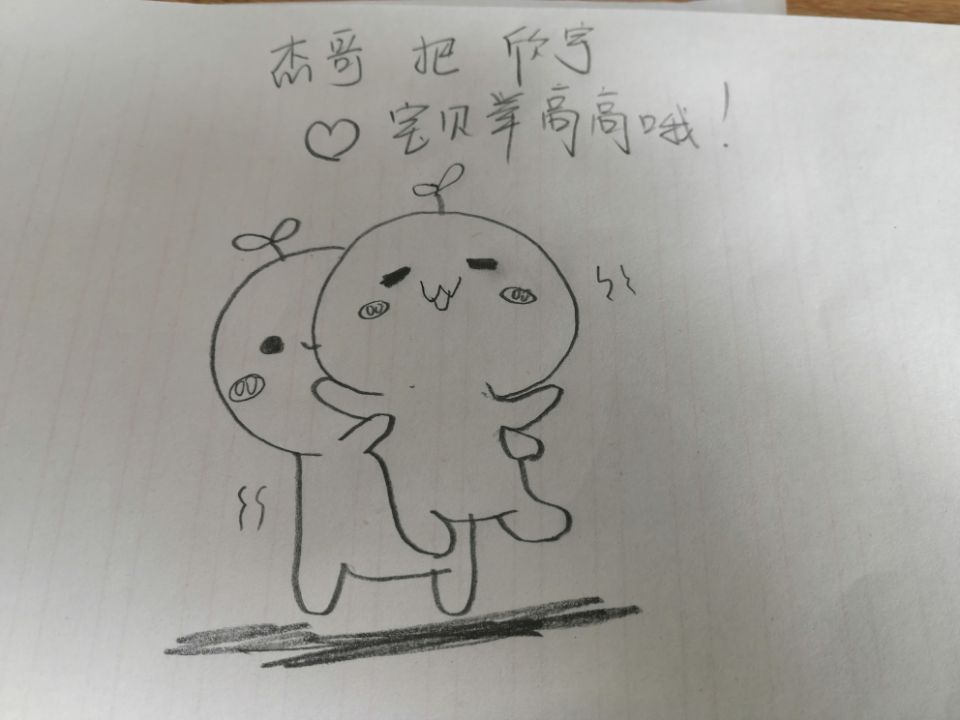 杰哥 把 欣宇
♡ 宝贝举高高哦！